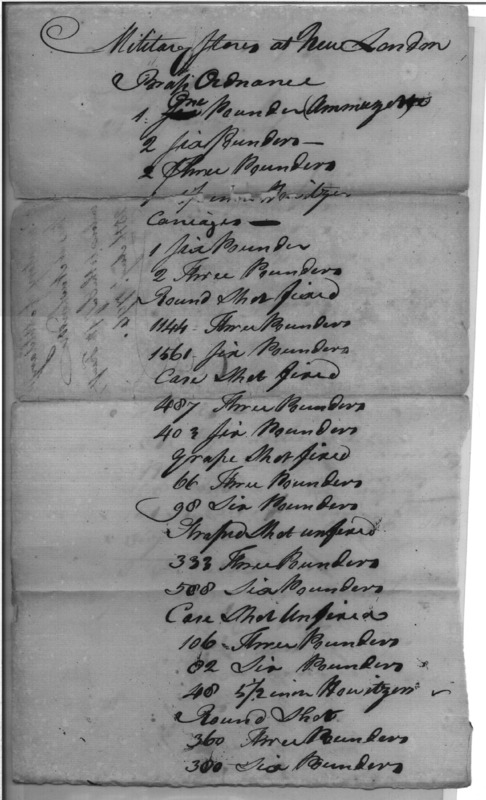 Military Stores at New London
Brass Ordnance
1 One Pounder (Ammuzette)
2 Six Pounders —
2 Three Pounders
1 5/2 inch Howitzer
Carriages —
1 Six Pounder
2 Three Pounders
Round Shot fixed
1144 Three Pounders
1561 Six Pounders
Case Shot fixed
487 Three Pounders
403 Six Pounders
Grape Shot fixed
66 Three Pounders
98 Six Pounders
Straped Shot unfixed
333 Three Pounders
588 Six Pounders
Case Shot Unfixed
106 Three Pounders
82 Six Pounders
48 5/2 inch Howitzers
Round Shot
360 Three Pounders
300 Six Pounders